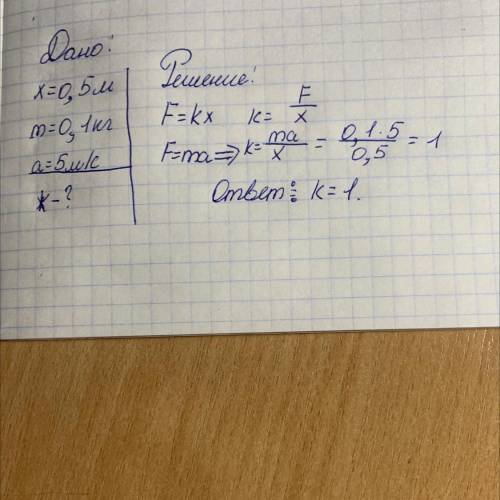 Дано:
x=0,5м
m=0,1кг
a=5м/с
k-?
Решение:
F=kx k=F/x
F=ma=> k=ma/x = 0,1·5/0,5 = 1
Ответ: k=1.